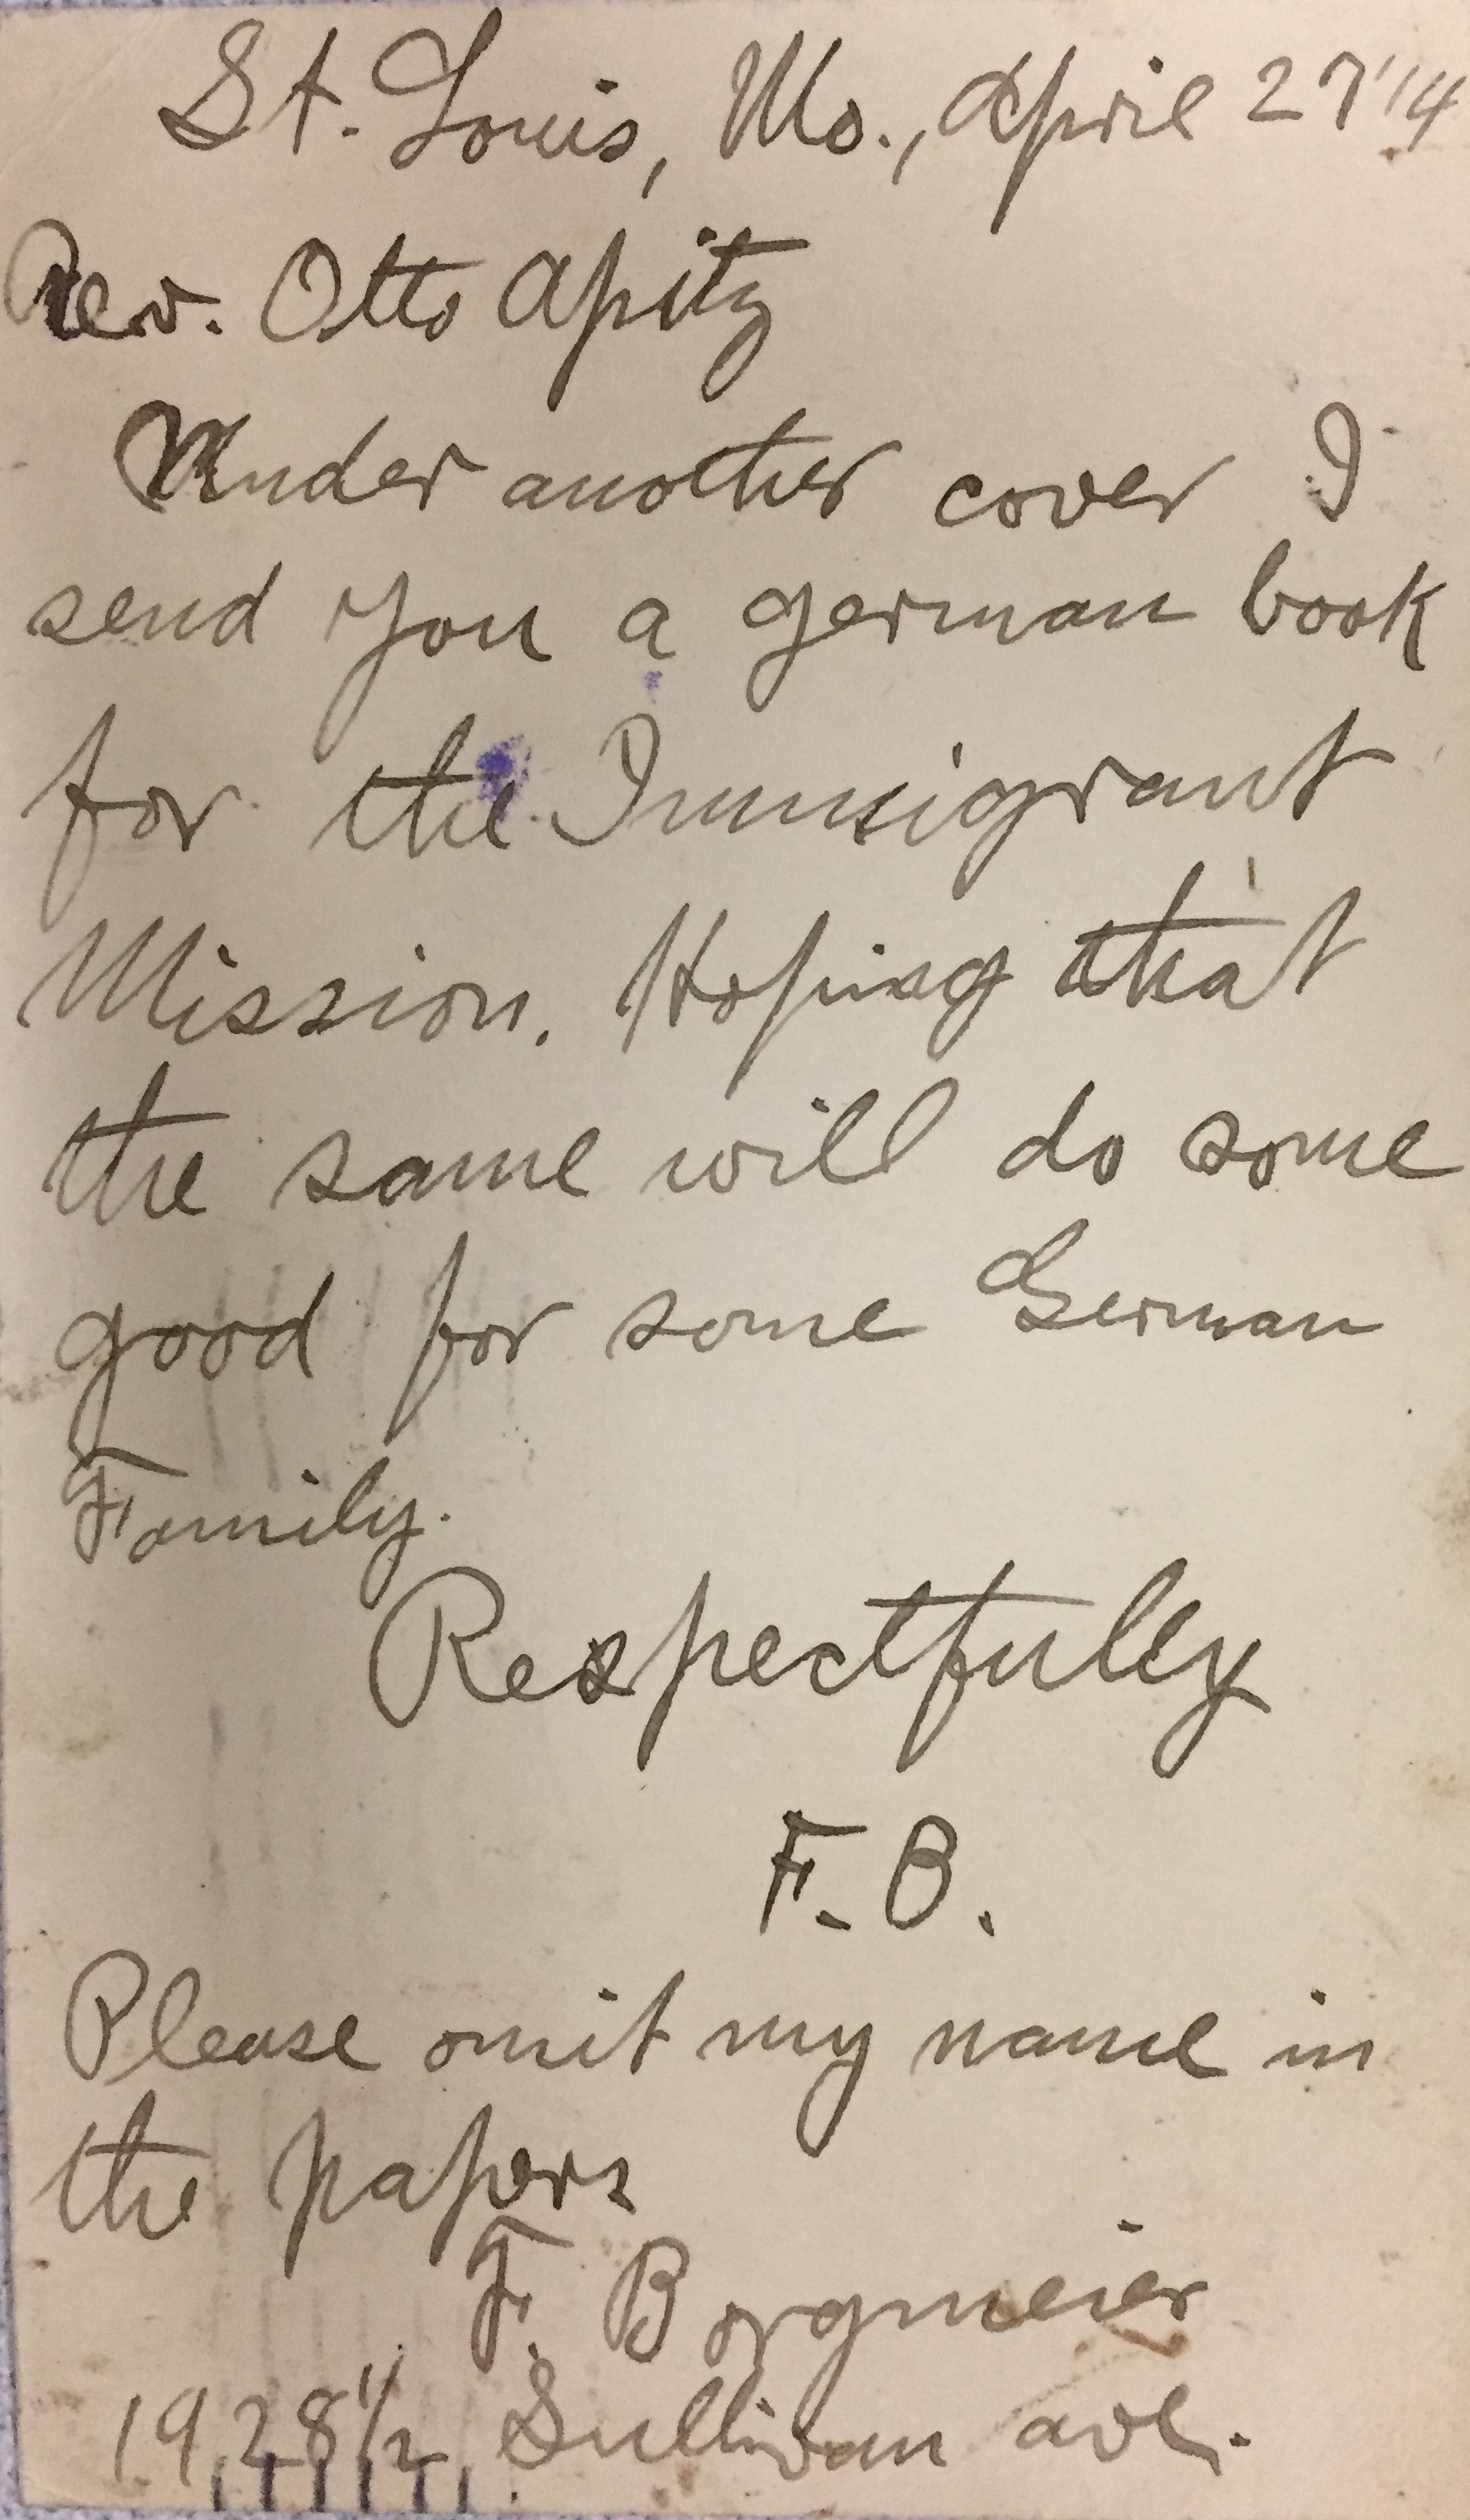 St. Louis, Mo., April 27 '14
Rev. Otto Apitz
Under another cover I
send you a german book
for the Immigrant
Mission. Hoping that
the same will do some
good for some German
Family.
Respectfully
F. B.
Please omit my name in
the papers
F. Borgmeier
1928 1/2 Sullivan ave.